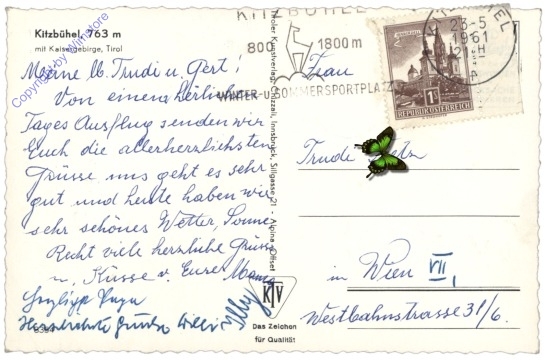 Kitzbühel, 763 m
mit Kaisergebirge, Tirol
Meine lb. Trudi u. Gert!
Von einem herrlichen
Tages Ausflug senden wir
Euch die allerherzlichsten
Grüsse uns geht es sehr
gut und heute haben wir
sehr schönes Wetter, Sonne
Recht viele herzliche Grüsse
u. Küsse v. Eure Mama
Herzlichste Grüße Willi
Copyright by
Tiroler Kunstverlag Chizzali, Innsbruck, Sillgasse 21 - Alpina Offset
KTV
Das Zeichen
für Qualität
KITZBÜHEL
800 1800 m
WINTER-U. SOMMERSPORTPLATZ
23-5
1961
1S
REPUBLIK ÖSTERREICH
Frau
Trude
in Wien VII,
Westbahnstrasse 31/6.